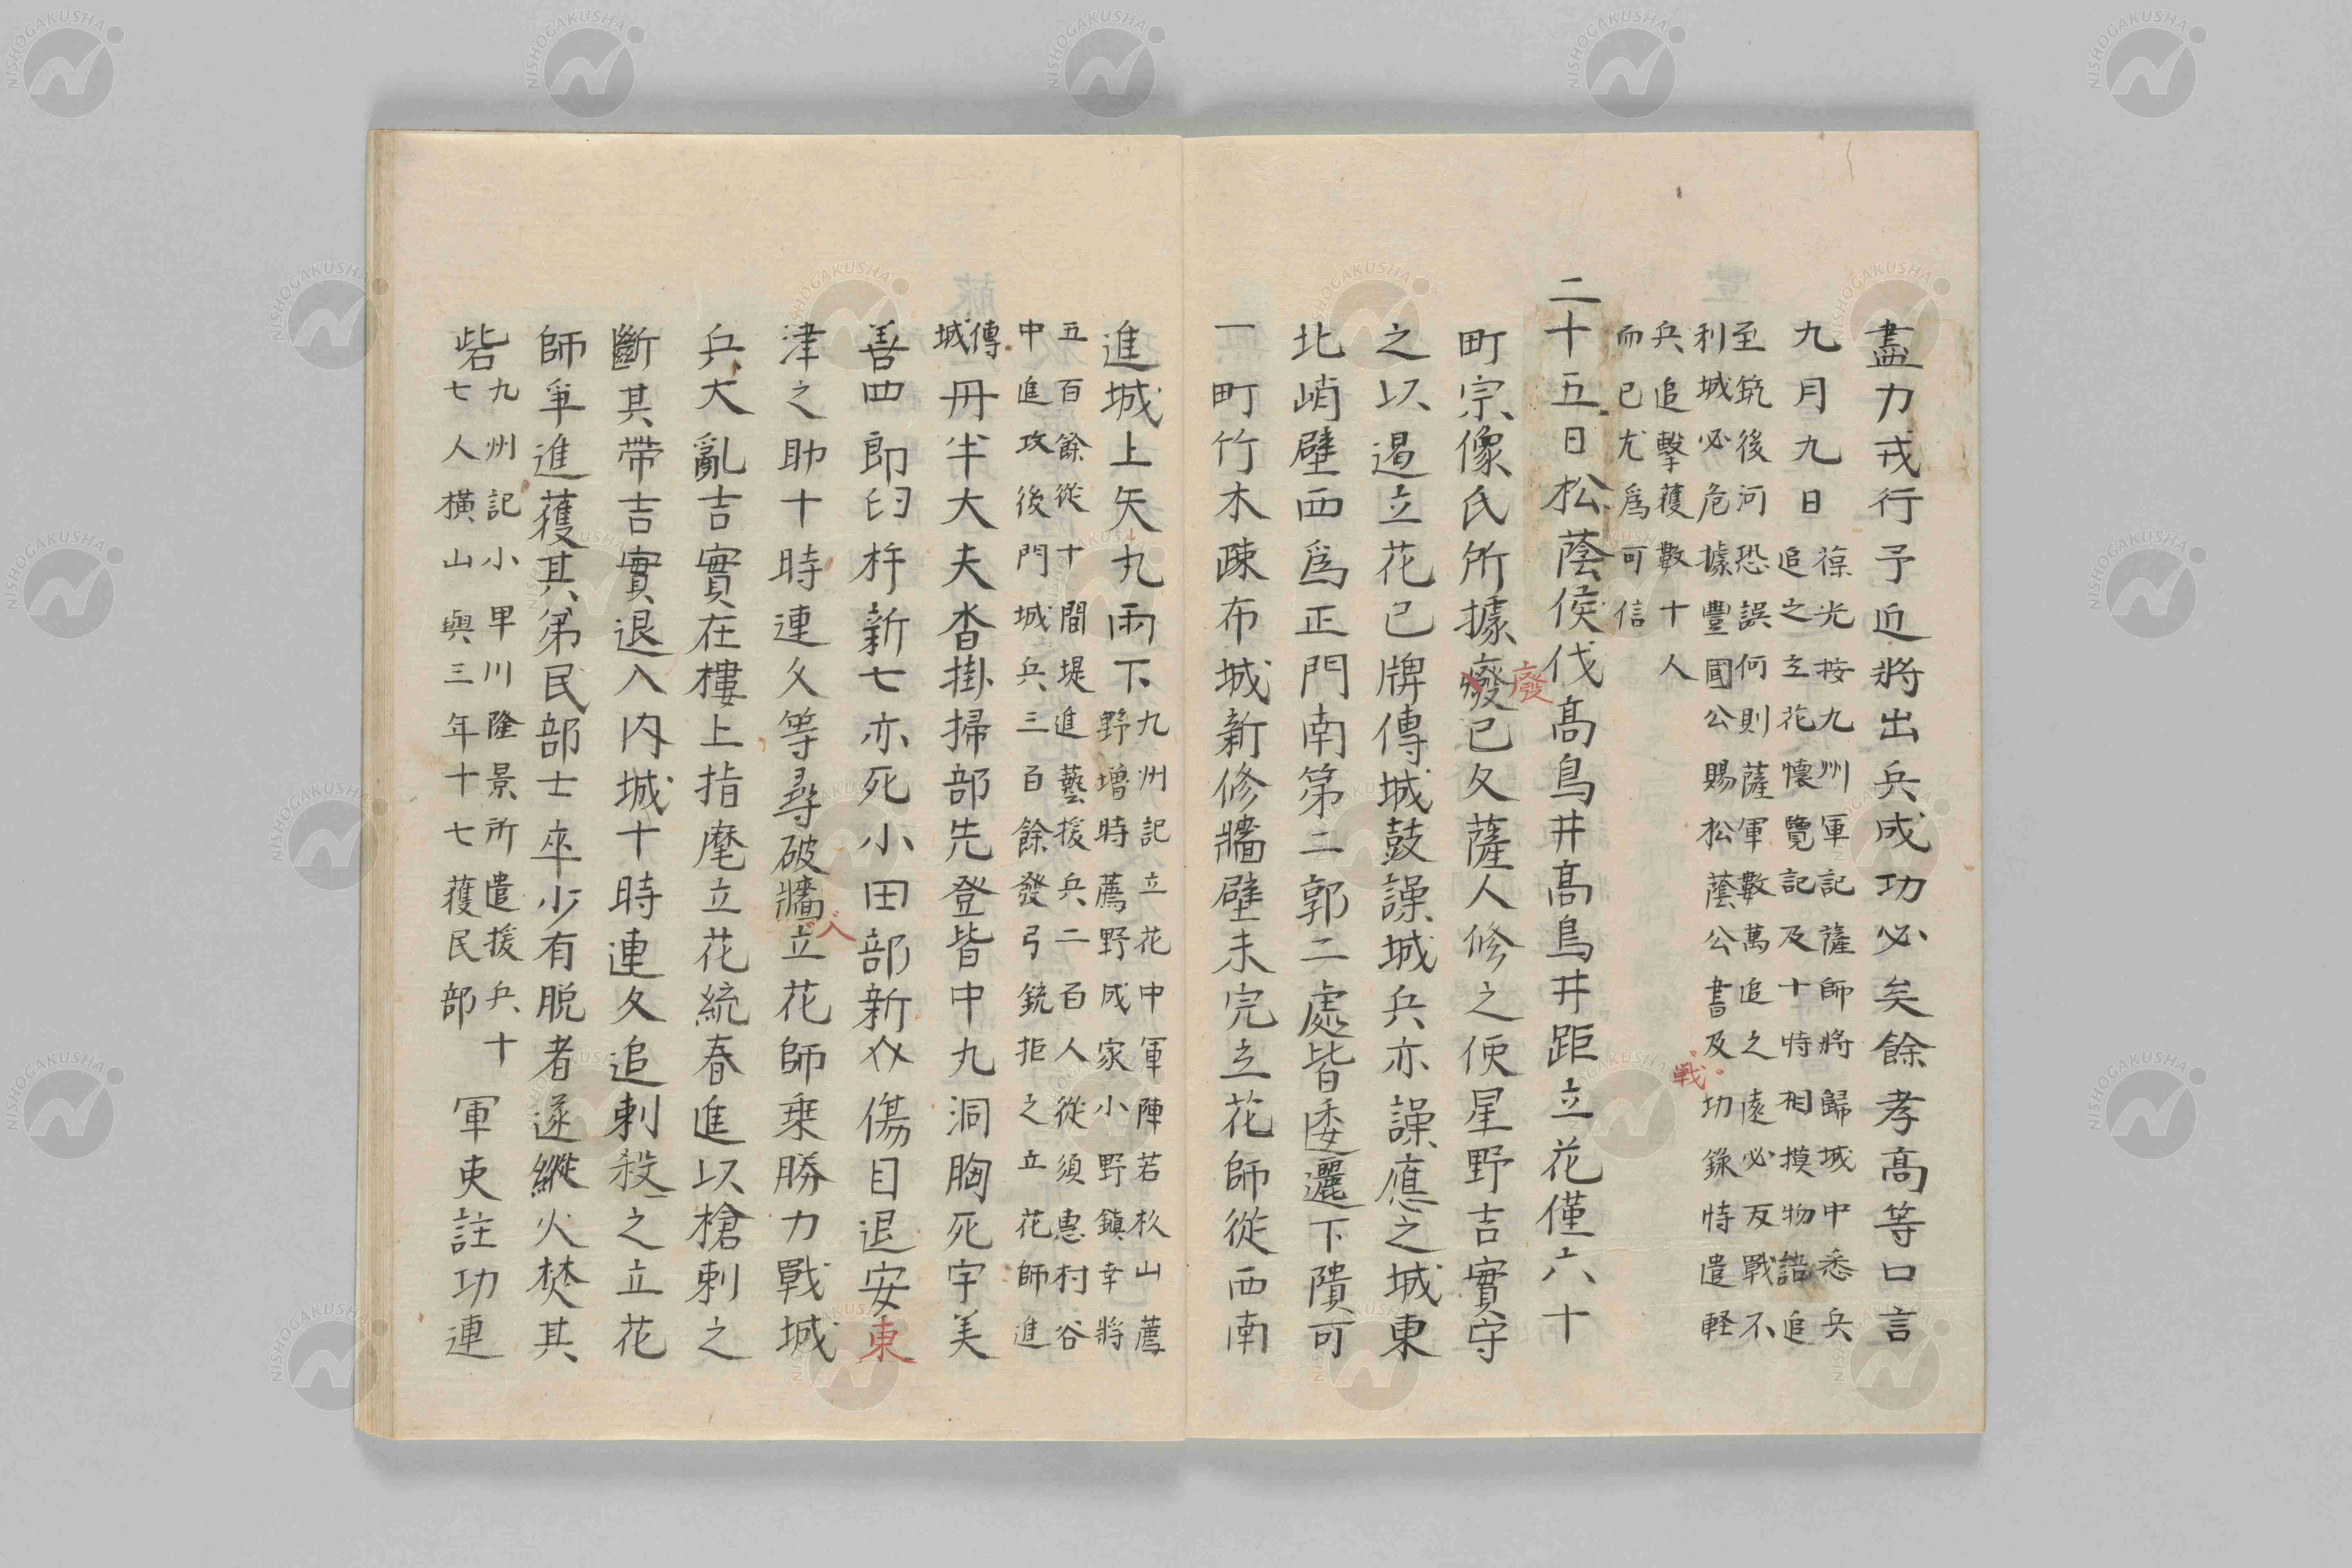 盡力戎行予近將出兵成功必矣餘孝高等口言
九月九日
葆光按九州軍記薩師將歸城中悉兵
追之立花懷覽記及十時相摸物語追
至筑後河恐誤何則薩軍數萬追之遠必反戰不
利城必危據豐國公賜松蔭公書及功錄特遣軽
戰
兵追擊獲數十人
而已尤爲可信
二十五日松蔭侯伐髙鳥井髙鳥井距立花僅六十
町宗像氏所據癈已久薩人修之使星野吉實守
廢
之以遏立花已牌傳城鼓譟城兵亦譟應之城東
北峭壁西爲正門南第二郭二處皆逶邐下隤可
一町竹木疎布城新修牆壁未完立花師從西南
進城上矢丸雨下
九州記立花中軍陣若杦山薦
野增時薦野成家小野鎮幸將
五百餘從十間堤進藝援兵二百人從須惠村谷
中進攻後門城兵三百餘發弓銃拒之立花師進
傳
城
冊半大夫沓掛掃部先登皆中丸洞胸死宇美
善四郎臼杵新七亦死小田部新介傷目退安東
津之助十時連久等尋破牆立花師乗勝力戰城
入
兵大亂吉實在樓上指麾立花統春進以槍刺之
斷其帶吉實退入内城十時連久追刺殺之立花
師爭進獲其弟民部士卒少有脱者遂縱火焚其
砦
九州記小早川隆景所遣援兵十
七人橫山與三年十七獲民部
軍吏註功連